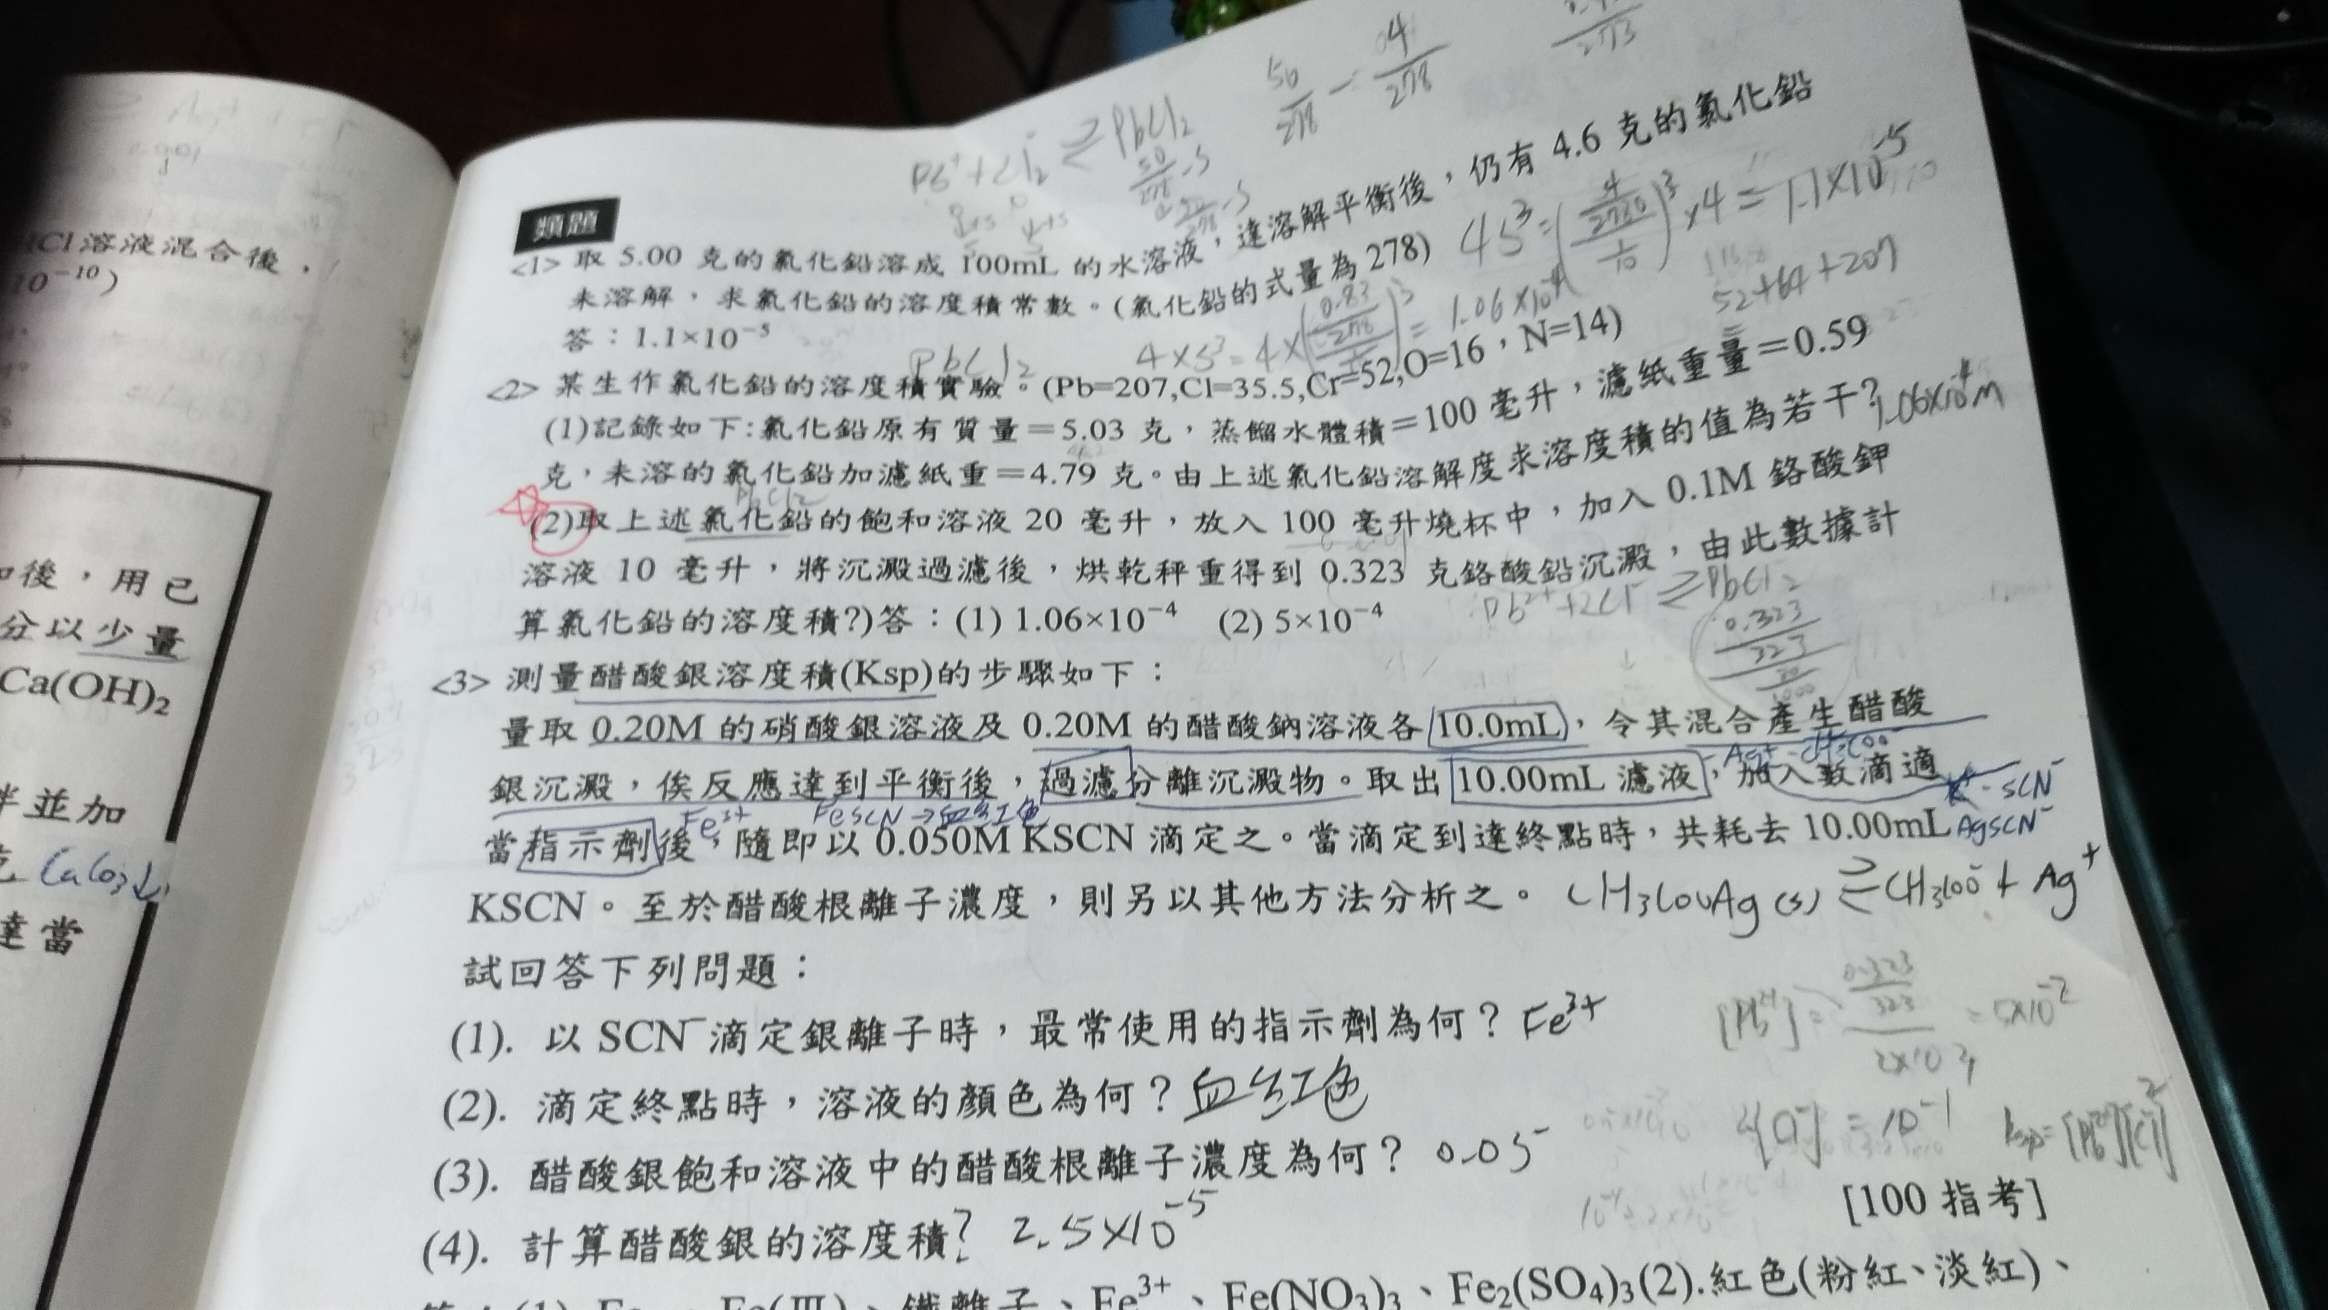 HCl溶液混合後，
10⁻¹⁰)
後，用已
分以少量
Ca(OH)₂
並加
CaCO₃↓
達當
50/278 - 4/278
Pb⁺ + Cl₂⁻ ⇌ PbCl₂
類題
<1> 取 5.00 克的氯化鉛溶成 100mL 的水溶液，達溶解平衡後，仍有 4.6 克的氯化鉛
未溶解，求氯化鉛的溶度積常數。(氯化鉛的式量為 278)
4S³=
×4 = 1.1×10⁻⁵
答：1.1×10⁻⁵
PbCl₂
4×S³=4×
= 1.06×10⁻⁴
52+64+207
<2> 某生作氯化鉛的溶度積實驗。(Pb=207,Cl=35.5,Cr=52,O=16，N=14)
(1)記錄如下:氯化鉛原有質量＝5.03 克，蒸餾水體積＝100 毫升，濾紙重量＝0.59
克，未溶的氯化鉛加濾紙重＝4.79 克。由上述氯化鉛溶解度求溶度積的值為若干？
1.06×10⁻⁴M
PbCl₂
(2)取上述氯化鉛的飽和溶液 20 毫升，放入 100 毫升燒杯中，加入 0.1M 鉻酸鉀
溶液 10 毫升，將沉澱過濾後，烘乾秤重得到 0.323 克鉻酸鉛沉澱，由此數據計
算氯化鉛的溶度積?)答：(1) 1.06×10⁻⁴ (2) 5×10⁻⁴
Pb²⁺+2Cl⁻ ⇌ PbCl₂
0.323
323
20
1000
<3> 測量醋酸銀溶度積(Ksp)的步驟如下：
量取 0.20M 的硝酸銀溶液及 0.20M 的醋酸鈉溶液各 10.0mL，令其混合產生醋酸
Ag⁺ CH₃COO⁻
銀沉澱，俟反應達到平衡後，過濾分離沉澱物。取出 10.00mL 濾液，加入數滴適
Fe³⁺ FeSCN→血紅色
SCN⁻
當指示劑後，隨即以 0.050M KSCN 滴定之。當滴定到達終點時，共耗去 10.00mL
AgSCN⁻
KSCN。至於醋酸根離子濃度，則另以其他方法分析之。
CH₃COOAg(s) ⇌ CH₃COO⁻ + Ag⁺
試回答下列問題：
(1). 以 SCN⁻ 滴定銀離子時，最常使用的指示劑為何？ Fe³⁺
[Pb²⁺] = 0.323/323 / 2×10⁻² = 5×10⁻²
(2). 滴定終點時，溶液的顏色為何？ 血紅色
[Cl⁻] = 10⁻¹ Ksp=[Pb²⁺][Cl⁻]²
(3). 醋酸銀飽和溶液中的醋酸根離子濃度為何？ 0.05
(4). 計算醋酸銀的溶度積？ 2.5×10⁻⁵
[100 指考]
Fe(Ⅲ)、鐵離子、Fe³⁺、Fe(NO₃)₃、Fe₂(SO₄)₃(2).紅色(粉紅、淡紅)、